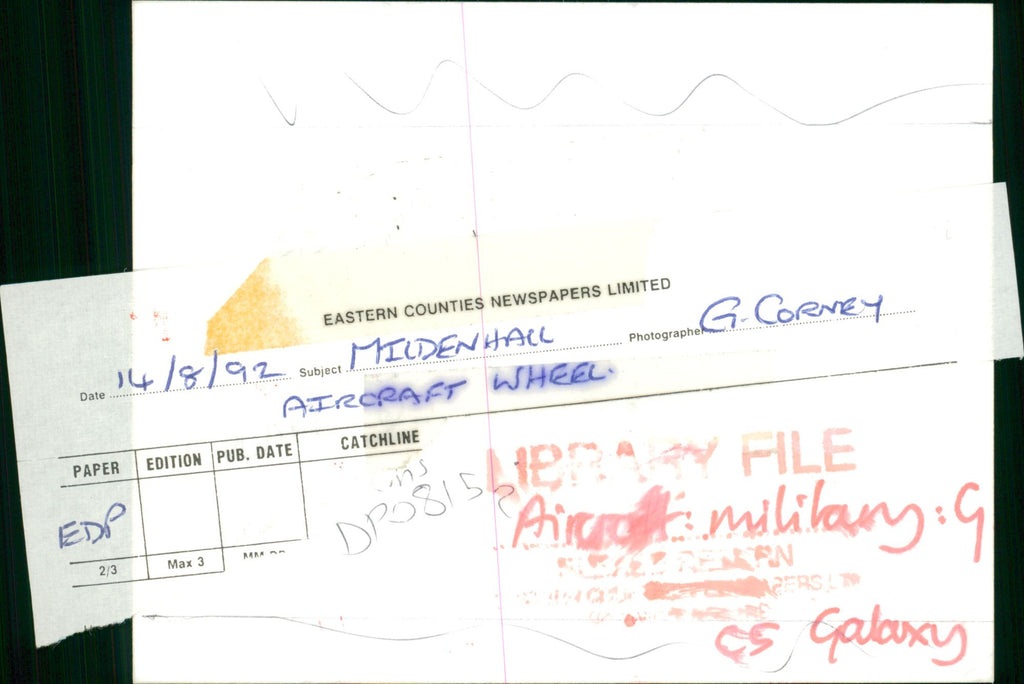 EASTERN COUNTIES NEWSPAPERS LIMITED
Date 14/8/92 Subject MILDENHALL Photographer G. CORNEY
AIRCRAFT WHEEL.
PAPER EDITION PUB. DATE CATCHLINE
EDP
2/3 Max 3
ins
LIBRARY FILE
Aircraft: military: G
RETURN
C5 Galaxy